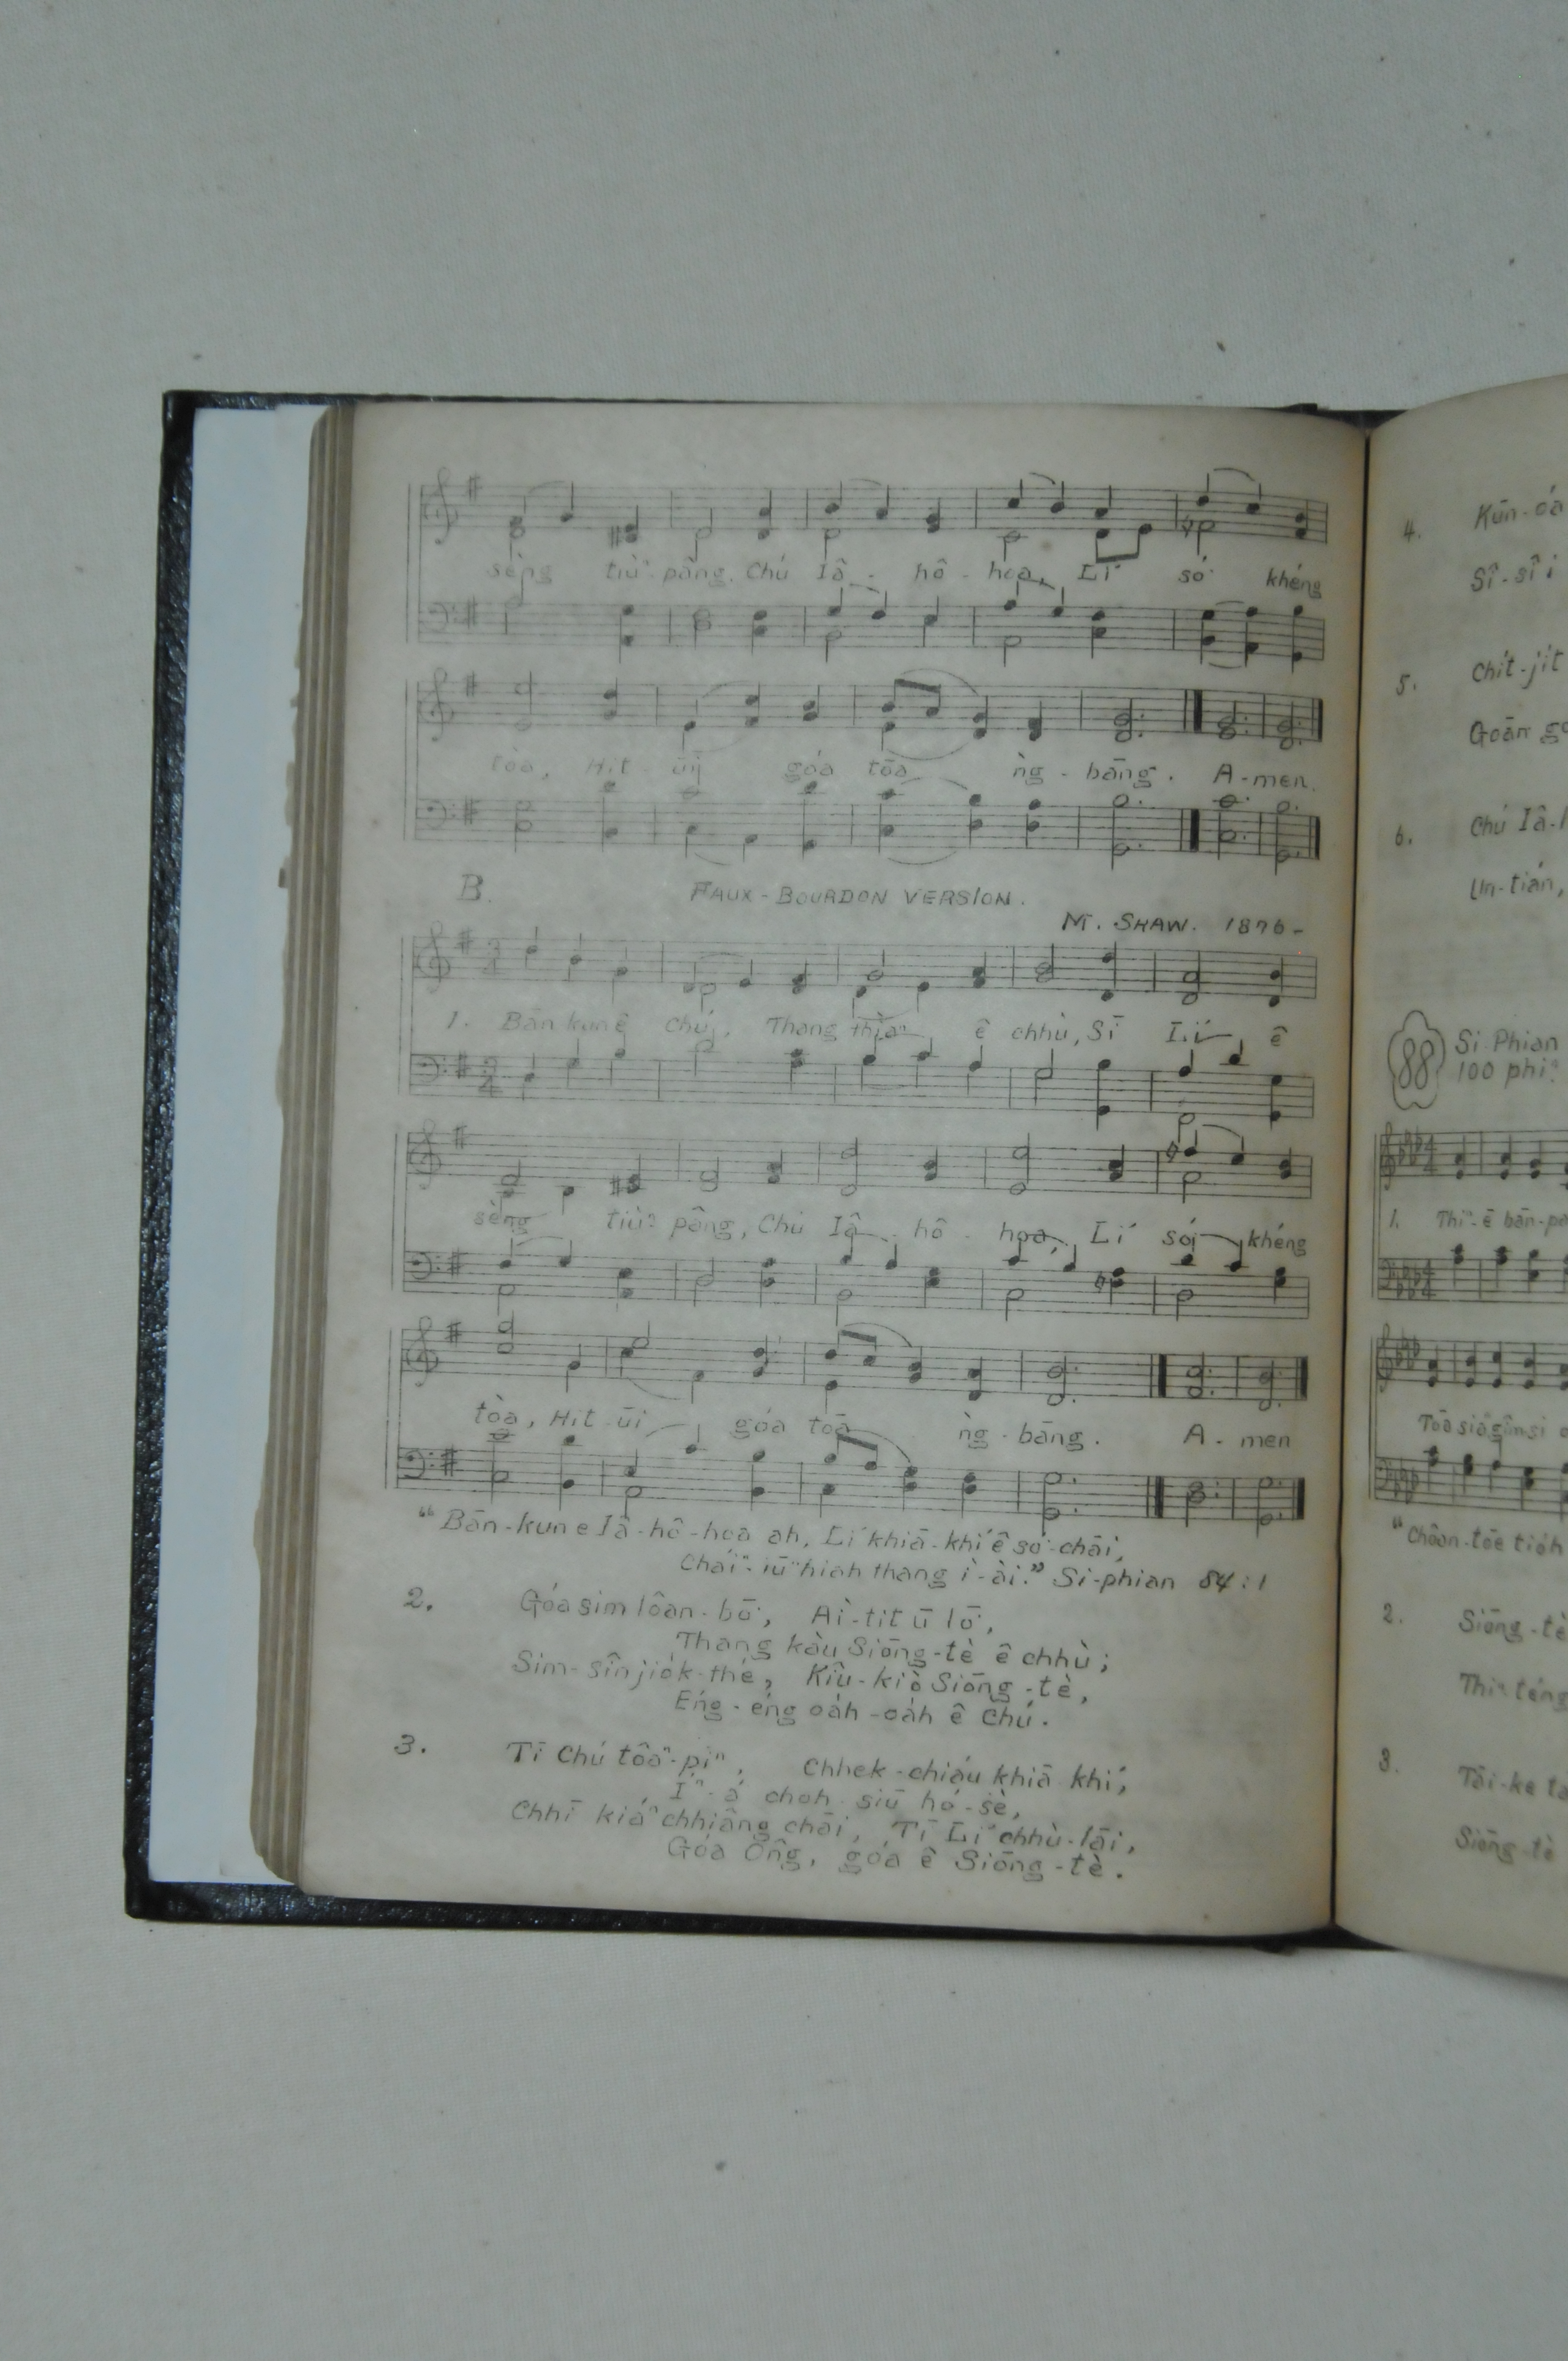 sèng tiùⁿ-pâng. Chú Iâ-hô-hoa, Lí só͘ khéng
tòa, Hit ūi góa tōa ǹg-bāng. A-men.
B. FAUX-BOURDON VERSION.
M. SHAW. 1876-
3 4
1. Bān kun ê Chú, Thang thiàⁿ ê chhù, Sī Lí ê
sèng tiùⁿ pâng, Chú Iâ-hô-hoa, Lí só͘ khéng
tòa, Hit ūi góa tōa ǹg-bāng. A-men
"Bān-kun e Iâ-hô-hoa ah, Lí khiā-khí ê só͘-chāi,
Cháiⁿ-iūⁿ hiah thang ì-ài." Si-phian 84:1
2. Góa sim loân-bō͘, Ài-tit ū lō͘,
Thang kàu Siōng-tè ê chhù;
Sim-sîn jio̍k-thé, Kiû-kiò Siōng-tè,
Éng-éng oa̍h-oa̍h ê Chú.
3. Tī Chú tôaⁿ-piⁿ, Chhek-chiáu khiā khí,
Íⁿ-á choh siū hó-sè,
Chhī kiáⁿ chhiâng chāi, Tī Lí chhù-lāi,
Góa Ông, góa ê Siōng-tè.
4. Kūn-óa
Sî-sî i
5. Chi̍t-ji̍t
Goán
6. Chú Iâ-
Un-tián,
88 Si-Phian
100 phiⁿ
4 4
1. Thiⁿ-ē bān-
Tōa siaⁿ gîm si
"Choân-tōe tio̍h
2. Siōng-tè
Thiⁿ téng
3. Tāi-ke
Siōng-tè